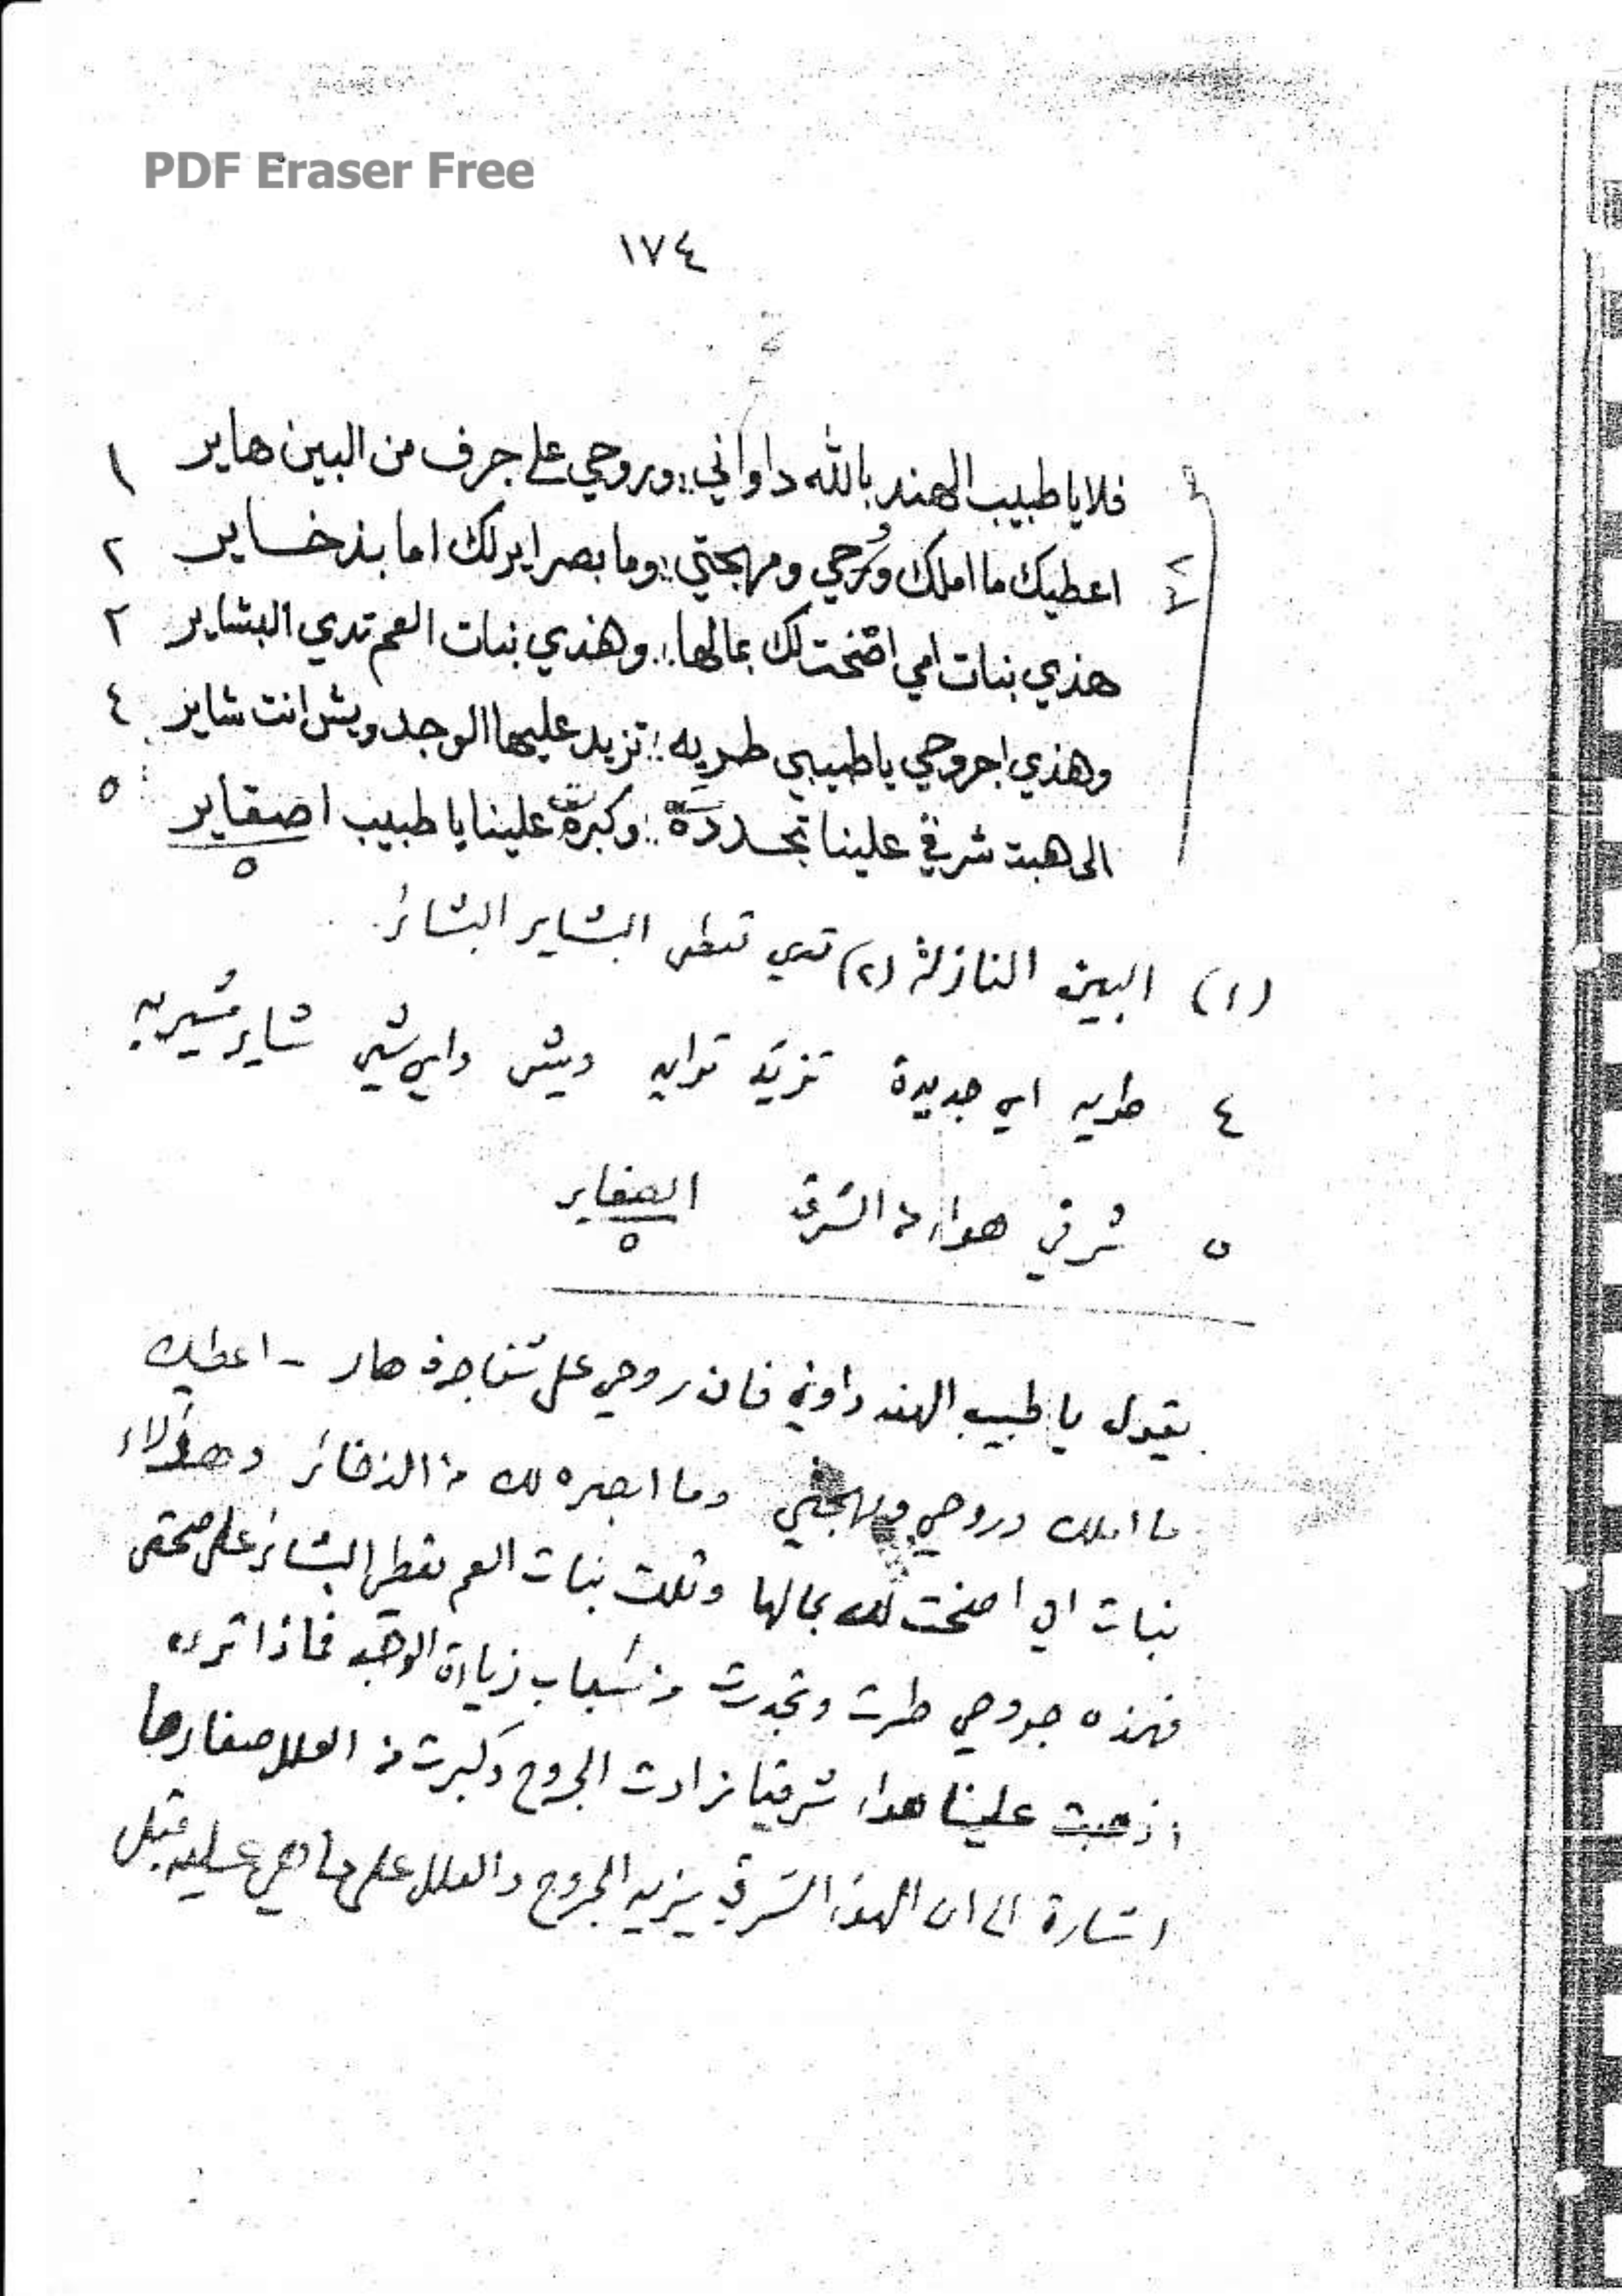 PDF Eraser Free
١٧٤
فلا يا طبيب الهند بالله داواني :: وروحي على جرف من البين هاير ١
اعطيك ما املك وروحي ومهجتي :: وما بصرايرلك اما بذخساير ٢
هذي بنات امي اضخت لك بمالها :: وهذي بنات العم تدي البشاير ٢
وهذي اجروحي يا طبيبي طريه :: تزيد عليها الوجد ويش انت شاير ٤
الى هبت شرقي علينا تجددة :: وكبرة علينا يا طبيب اصقاير ٥
٥
(١) البين النازلة (٢) تدي تعطى البشاير البشائر
٤ طريه اي جديدة تزيد ويش واي شي شاير مشير به
٥ شرقي هواء من الشرق الصغاير
٥
يقول يا طبيب الهند داوني فان روحي على شفا جرف هار - اعطيك
ما املك وروحي ومهجتي وما ابصره لك من الذخائر وهؤلاء
بنات امي اضخت لك بمالها وتلك بنات العم تعطي البشائر على صحتى
فهذه جروحي طرت وتجددت من اسباب زيادة الوجد فماذا ترى
اذ هبت علينا هواء شرقيا زادت الجروح وكبرت من العلل صغارها
اشارة الى ان الهواء الشرقي يزيد الجروح والعلل على ما هي عليه قبل